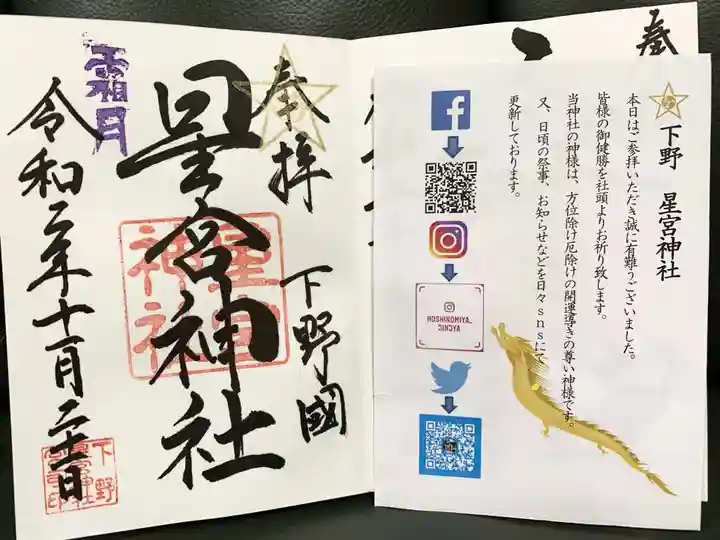 奉
下野 星宮神社
本日はご参拝いただき誠に有難うございました。
皆様の御健勝を社頭よりお祈り致します。
当神社の神様は、方位除け厄除けの開運導きの尊い神様です。
又、日頃の祭事、お知らせなどを日々snsにて
更新しております。
HOSHINOMIYA_
JINJYA
奉拝 下野國
星宮神社
星宮神社
霜月
令和二年十一月二十一日
下野